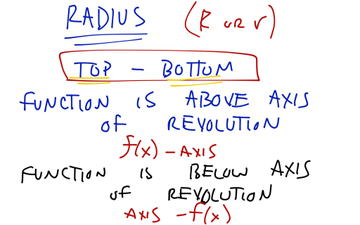 RADIUS (R OR r)
TOP - BOTTOM
FUNCTION IS ABOVE AXIS
OF REVOLUTION
f(x) - AXIS
FUNCTION IS BELOW AXIS
OF REVOLUTION
AXIS - f(x)